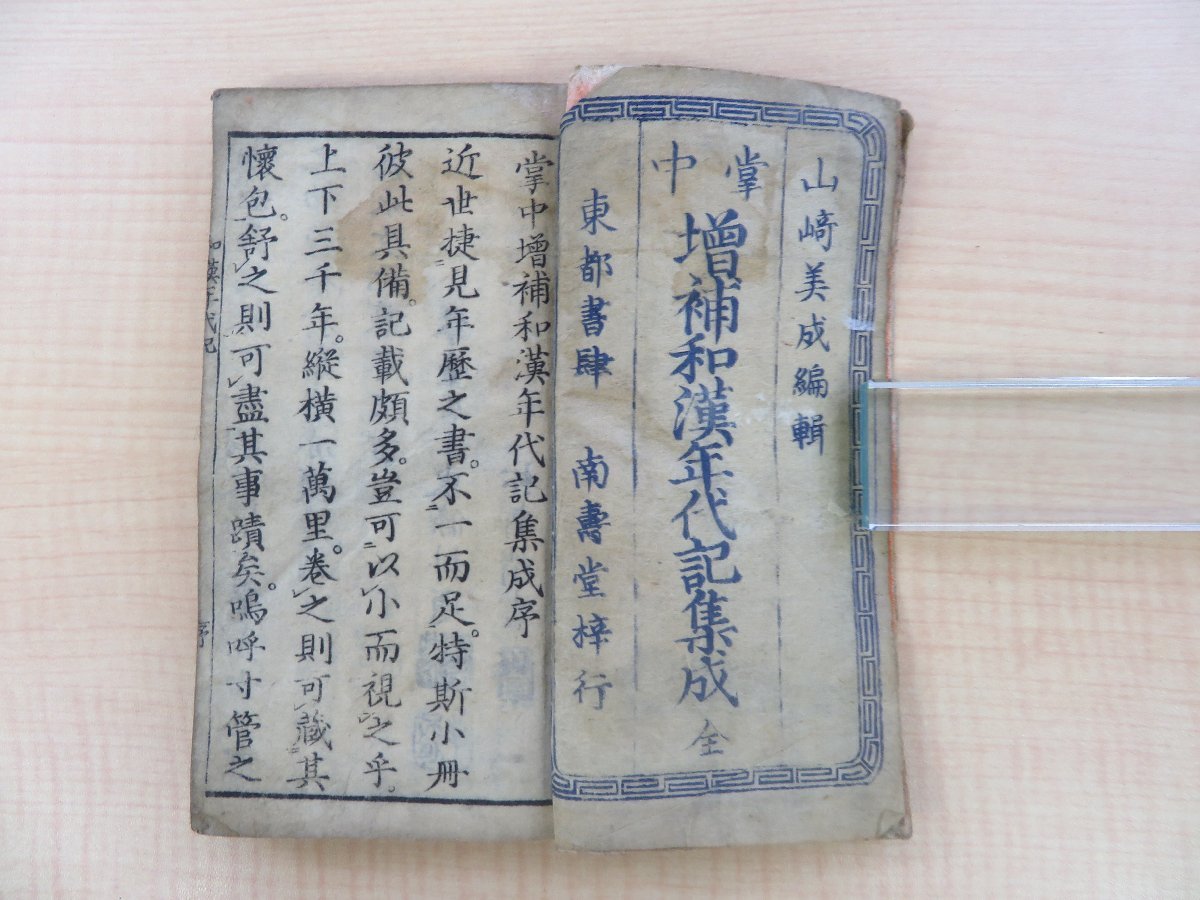 山﨑美成編輯
掌中
增補和漢年代記集成 全
東都書肆 南壽堂梓行
掌中增補和漢年代記集成序
近世捷見年歷之書。不一而足。特斯小冊
彼此具備。記載頗多。豈可以小而視之乎。
上下三千年。縱橫一萬里。卷之則可藏其
懷包。舒之則可盡其事蹟矣。嗚呼寸管之
和漢年代記
序